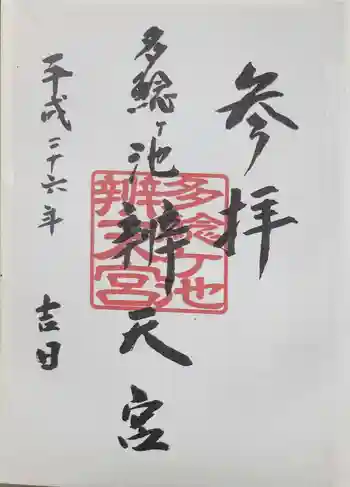 参拝
多鯰ヶ池辨天宮
多鯰ヶ池
辨天宮
平成二十六年 吉日